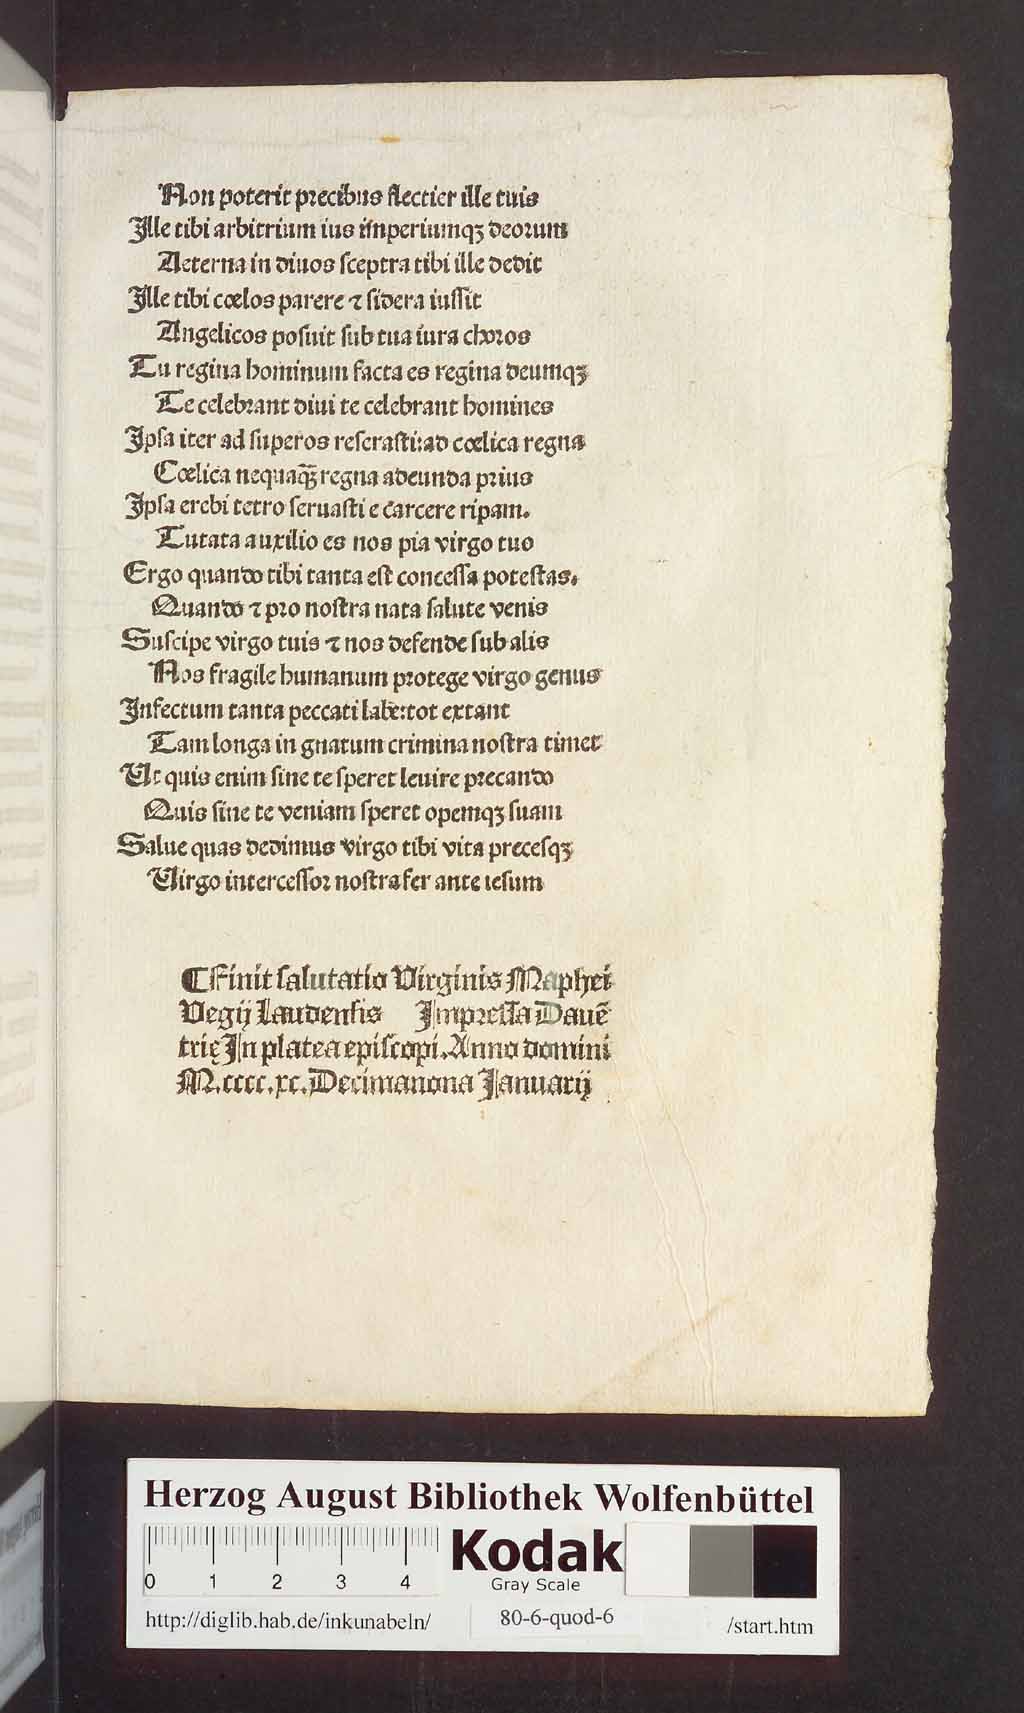 Non poterit precibus flectier ille tuis
Ille tibi arbitrium ius imperiumqꝫ deorum
Aeterna in diuos sceptra tibi ille dedit
Ille tibi cœlos parere ⁊ sidera iussit
Angelicos posuit sub tua iura choros
Tu regina hominum facta es regina deumqꝫ
Te celebrant diui te celebrant homines
Ipsa iter ad superos reserasti:ad cœlica regna
Cœlica nequaq̃ꝫ regna adeunda prius
Ipsa erebi tetro seruasti e carcere ripam.
Tutata auxilio es nos pia virgo tuo
Ergo quando tibi tanta est concessa potestas.
Quando ⁊ pro nostra nata salute venis
Suscipe virgo tuis ⁊ nos defende sub alis
Nos fragile humanum protege virgo genus
Infectum tanta peccati labe:tot extant
Tam longa in gnatum crimina nostra timet
Ut quis enim sine te speret leuire precando
Quis sine te veniam speret opemqꝫ suam
Salue quas dedimus virgo tibi vita precesqꝫ
Virgo intercessor nostra fer ante iesum
⸿Finit salutatio Virginis Maphei
Vegij Laudensis Impressa Dauē
trię In platea episcopi. Anno domini
M.cccc.xc. Decimanona Januarij
Herzog August Bibliothek Wolfenbüttel
0 1 2 3 4
Kodak
Gray Scale
http://diglib.hab.de/inkunabeln/ 80-6-quod-6 /start.htm